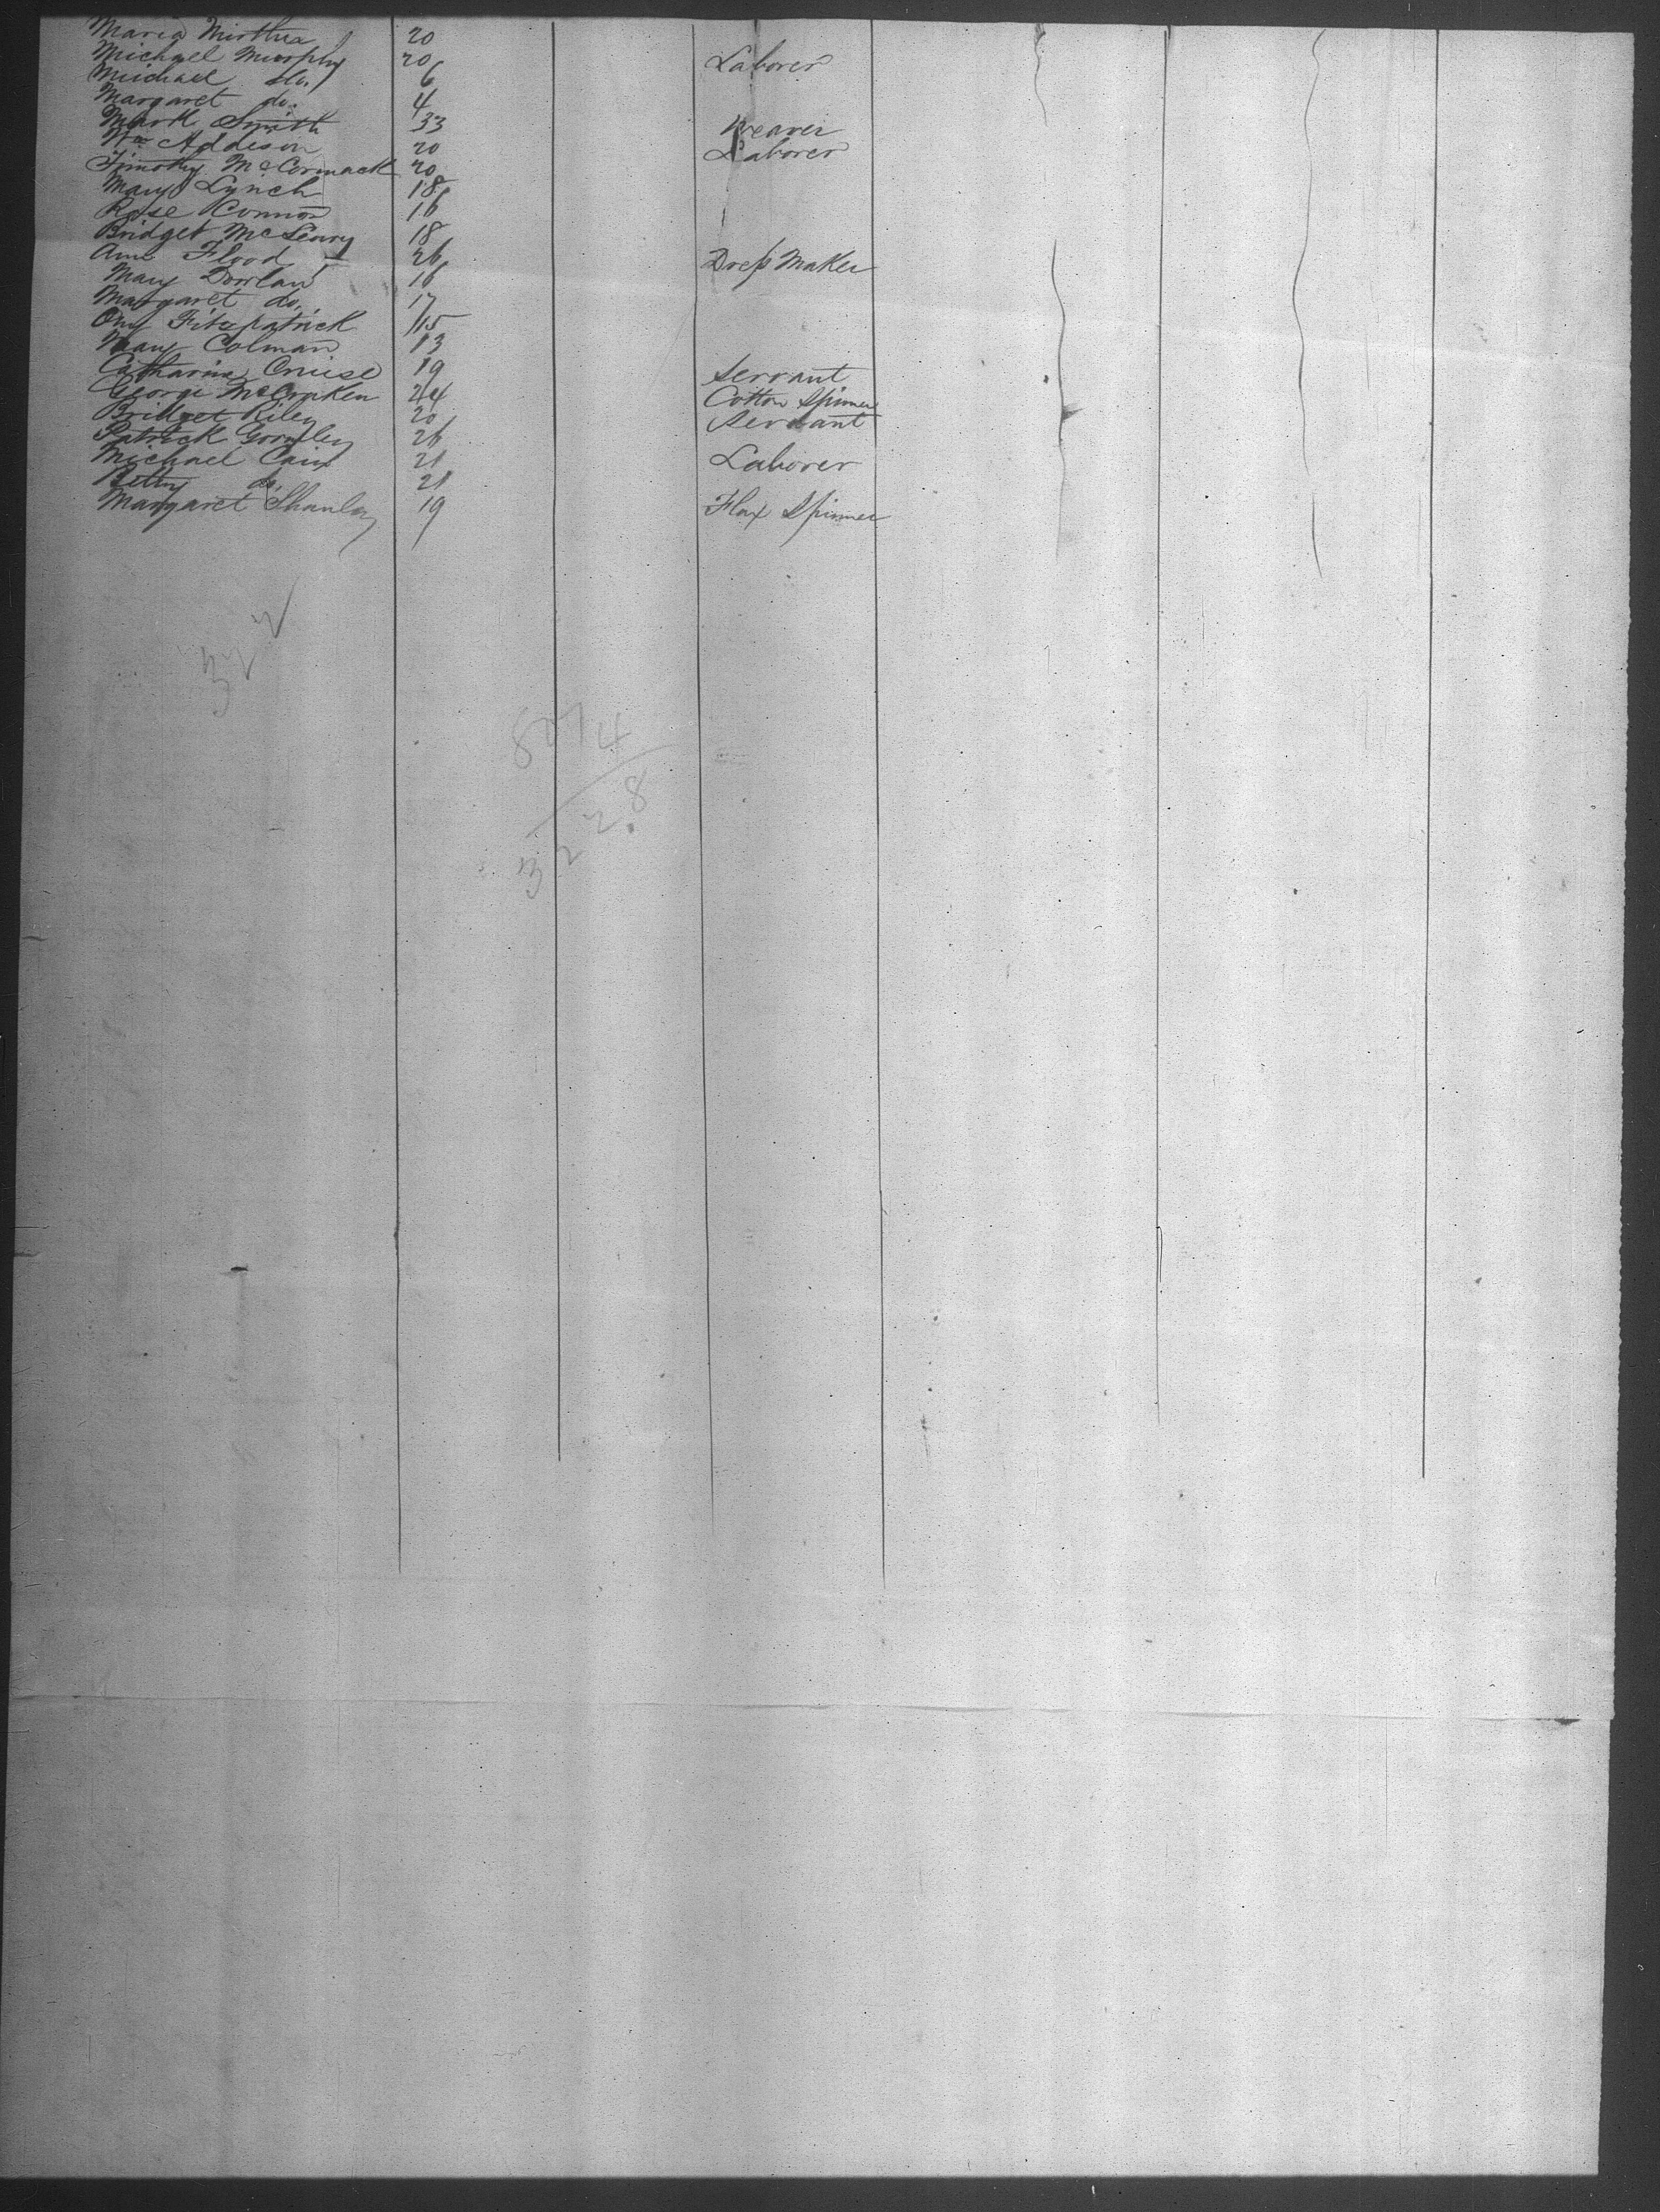 Maria 20
Michael Murphy 20 Laborer
Michael do. 6
Margaret do. 4
Mark Smith 33 Weaver
Wm Addison 20 Laborer
Timothy McCormack 20
Mary Lynch 18
Rose Connor 16
Bridget 18
Ann Flood 26 Dress Maker
Mary 16
Margaret do. 17
Fitzpatrick 15
Mary Colman 13
Catharine Cruise 19 Servant
George McCraken 24 Cotton Spinner
Bridget Riley 20 Servant
Patrick Gormley 26
Michael Cain 21 Laborer
Betty do. 21
Margaret Shanley 19 Flax Spinner
322
8074
28
32